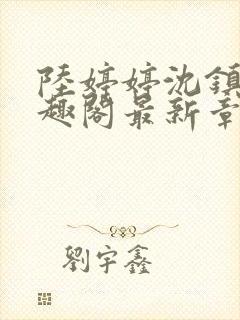 陸婷婷沈鎮
趣閣最新章
劉宇鑫